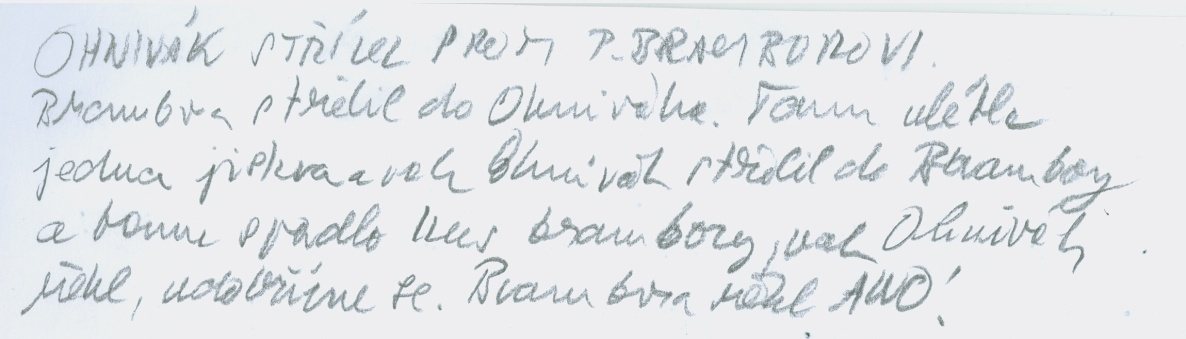 OHNIVÁK STŘÍLEL PROTI P. BRAMBOROVI.
Brambora střelil do Ohniváka. Tomu ulétla
jedna jiskra a pak Ohnivák střelil do Brambory
a tomu spadlo kus brambory, pak Ohnivák
řekl, udobříme se. Brambora řekl ANO!